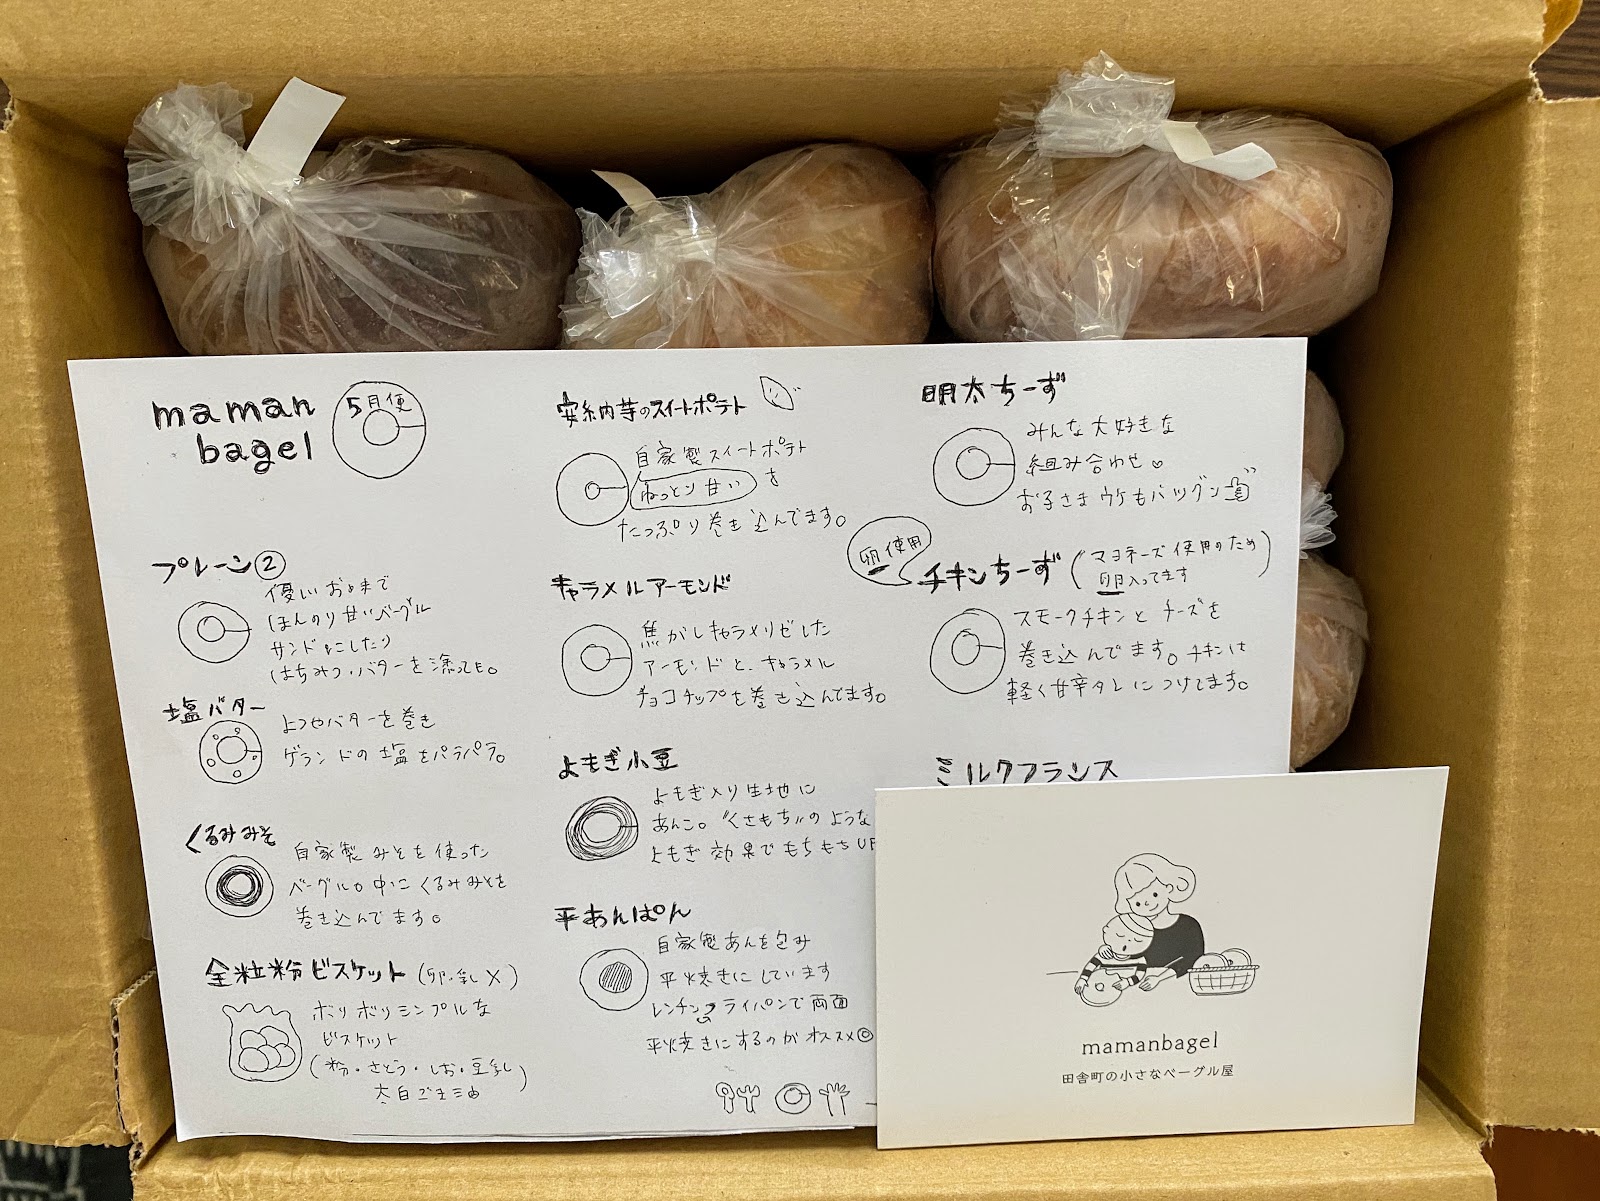 maman
bagel
5月便
プレーン②
優しいお味で
ほんのり甘いベーグル
サンドにしたり
はちみつ・バターを塗っても。
塩バター
よつやバターを巻き
ゲランドの塩をパラパラ。
くるみみそ
自家製みそを使った
ベーグル。中にくるみみそを
巻き込んでます。
全粒粉ビスケット (卵・乳×)
ボリボリシンプルな
ビスケット
(粉・さとう・しお・豆乳
太白ごま油)
安納芋のスイートポテト
自家製スイートポテト
ねっとり甘いを
たっぷり巻き込んでます。
キャラメルアーモンド
焦がしキャラメリゼした
アーモンドと、キャラメル
チョコチップを巻き込んでます。
よもぎ小豆
よもぎ入り生地に
あんこ。"くさもち"のような
よもぎ効果でもちもちUP
平あんぱん
自家製あんを包み
平焼きにしています
レンチン フライパンで両面
平焼きにするのがオススメ◎
明太ちーず
みんな大好きな
組み合わせ♡
お子さまウケもバツグン
卵使用
チキンちーず (マヨネーズ使用のため
卵入ってます)
スモークチキンとチーズを
巻き込んでます。チキンは
軽く甘辛タレにつけてます。
ミルクフランス
mamanbagel
田舎町の小さなベーグル屋